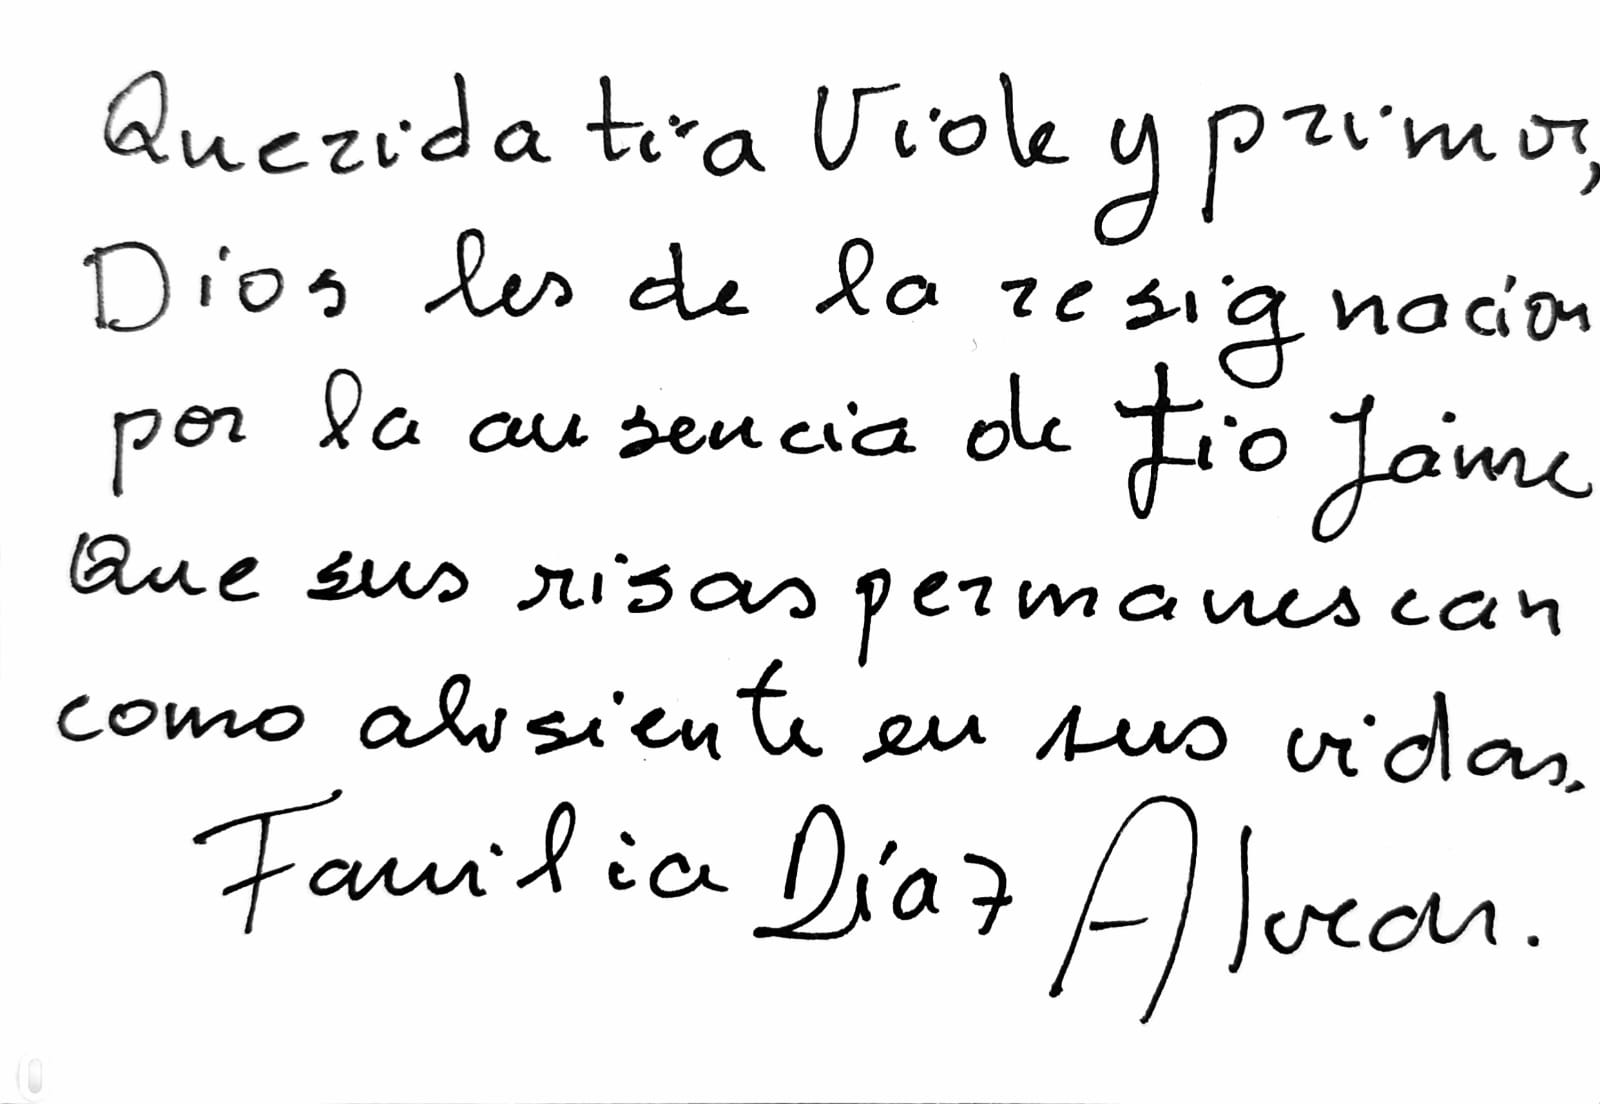 Querida tia Viole y primos,
Dios les de la resignacion
por la ausencia de tio Jaime
Que sus risas permanescan
como aliciente en sus vidas.
Familia Díaz